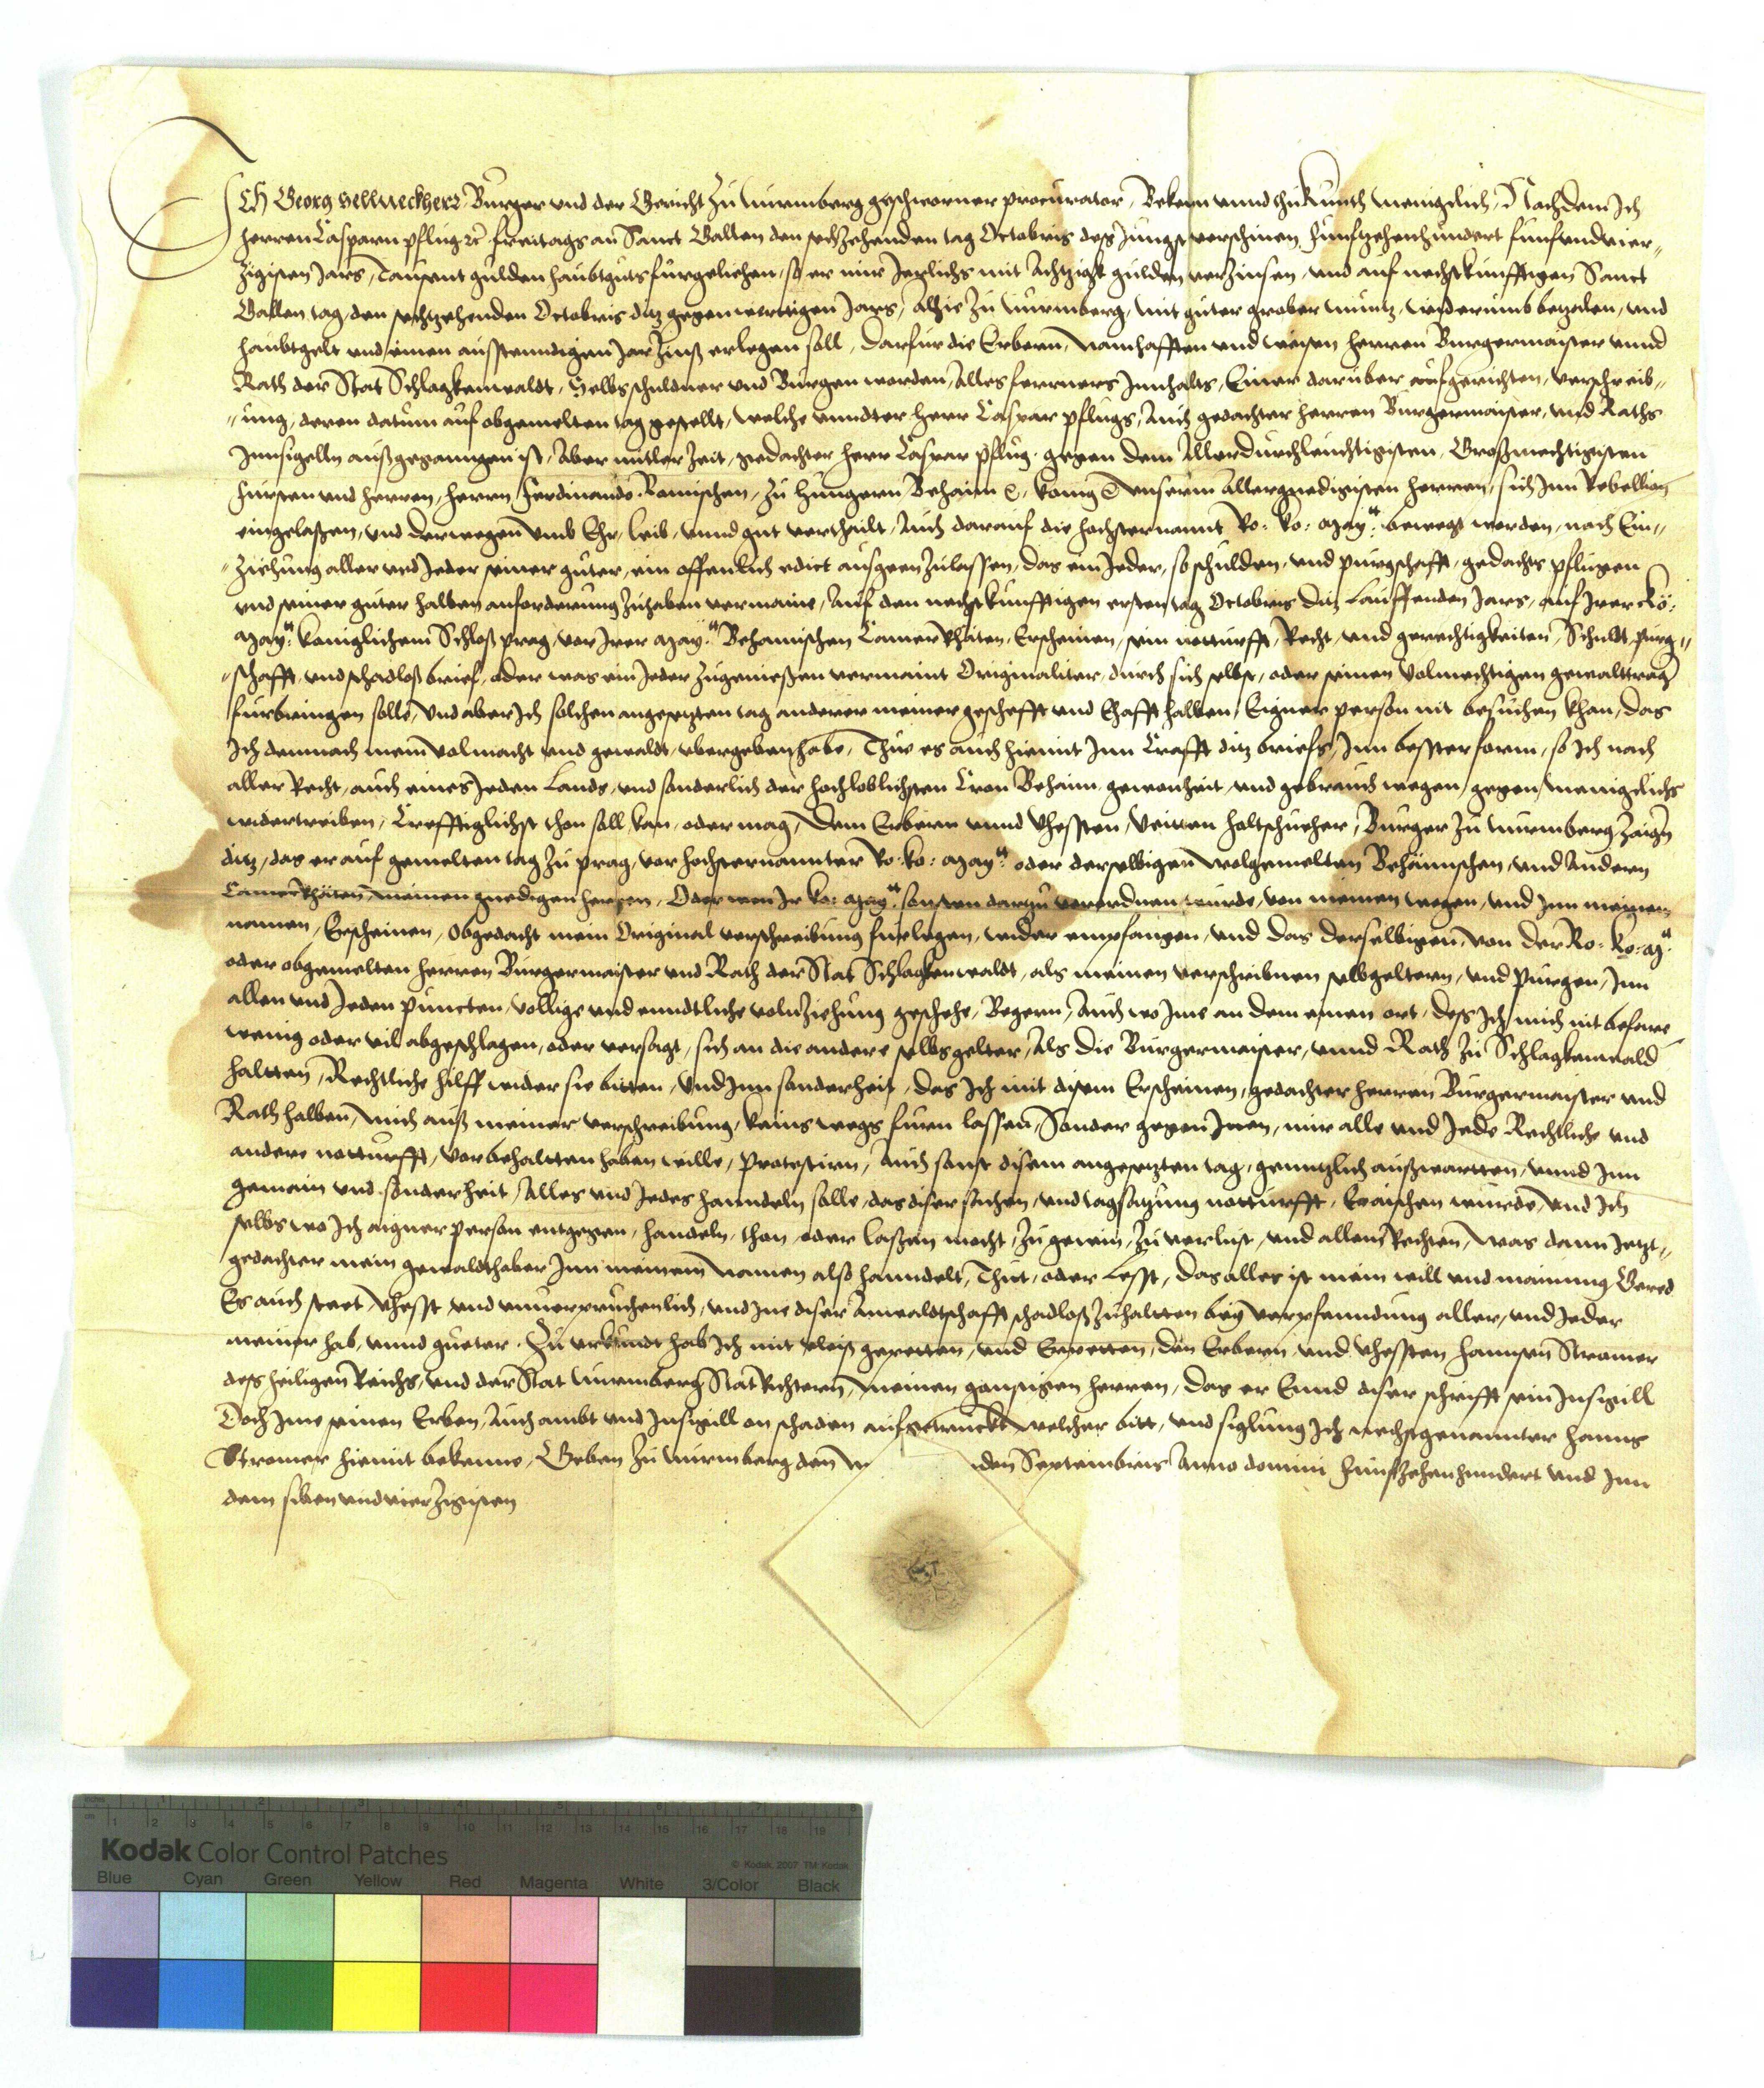 ICH Georg Hellneckher Burger und der Gericht zu Nurmberg geschworner procurator, Bekenn unnd thu kunth menigclich, Nachdem Ich
herren Caspar pflug ꝛc freitags an Sanct Gallen den sechzehenden tag Octobris des Jungstverschinen funfzehenhundert funfundvier„
zigisten Jars, Tausent gulden haubtguts furgelichen, so er mir Jerlichs mit Achtzigk gulden verzinsen, und auf nechstkunfftigen Sanct
Gallen tag, den sechtzehenden Octobris ditz gegenwerttigen Jars, alhie zu Nurmberg, mit guter grober muntz, widerumb betzalen, und
haubtgelt und einen ausstenndigen Jarzinß erlegen soll, Darfur die Erbern, Namhafften und weisen herren Burgermaister unnd
Rath der Stat Schlagkenwaldt, Selbschuldner und Burgen worden, Alles ferrners Innhalts, Einer daruber aufgerichten, verschreib„
„ung, deren datum auf obgemelten tag gestellt, welche unndter herr Caspar pflugs, Auch gedachter herren Burgermaister, und Raths
Innsigeln außgeganngen ist, Aber mitler zeit, gedachter herr Caspar pflug, gegen dem Allerdurchleuchtigisten, Großmechtigisten
fursten und herren, herrn Ferdinando Romischen, zu Hungern Behaim ꝛc, konig ꝛc unserm Allergnedigisten herren, sich Inn Rebellion
eingelaßen, und derwegen umb Ehr, leib, unnd gut vertheilt, Auch darauf die hochsternannt Ro: Ko: May:ᵗ bewegt worden, nach Ein„
„ziehung aller und Jeder seiner guter, ein offenlich edict ausgeen zulassen, das ein Jeder, so schulden, und purgschafft, gedachts pflugen
und seiner guter halben anforderung zuhaben vermaine, Auf den nechstkunfftigen ersten tag Octobris ditz Lauffenden Jars, auf Irer Ko:
May:ᵗ koniglichem Schloß prag, vor Irer May:ᵗ Behamischen Camer Rhäten, Erscheinen, sein notturfft, Recht, und gerechtigkeiten, Schult, purg„
„schafft, und schadloßbrief, oder was ein Jeder zugenießen vermaint Originaliter, durch sich selbst, oder seinen volmechtigen gewalttrag
furbringen solle, Und aber Ich solchen angesetzten tag anderer meiner geschefft und Ehafft halben, Eigner person nit besuchen khan, das
Ich demnach mein volmacht und gewaldt, ubergeben habe, Thue es auch hiemit Inn Crafft ditz briefs, Inn besster form, so Ich nach
aller Recht, auch eines Jeden Lands, und sonderlich der hochloblichsten Cron Behaim gewonheit, und gebrauch wegen, gegen menigclichs
widertreiben, Crefftiglichst thon soll, kan, oder mag, Dem Erbern unnd vhessten, Veitten holtschucher, Burger zu Nurmberg Zaigern
ditz, das er auf gemelten tag zu prag, vor hochsternannter Ro: Ko: May:ᵗ oder derselbigen wolgemelten Behämischen, und Andern
Camer Rhäten, meinen gnedigen herren, Oder wen Ir Ko: May:ᵗ sonsten dartzu verordnen wurde, von meinen wegen, und Inn meinem
namen, Erscheinen, obgedacht mein Original verschreibung furlegen, wider empfangen, und das derselbigen, von der Ro: Ko: M:ᵗ
oder obgemelten herren Burgermaister und Rath der Stat Schlagkenwaldt, als meinen verschribnen selbgeltern, und Purgen, Inn
allen und Jeden puncten, vollige und enndtliche volnziehung geschehe, Begern, Auch wo Ime an dem einen ort, deß Ich mich nit befare
wenig oder vil abgeschlagen, oder versagt, sich an die andere selbsgelter, Als die Burgermeister, unnd Rath zu Schlagkenwald
haltten, Rechtliche hilff wider sie bitten, Und Inn sonderheit, das Ich mit disem Erscheinen, gedachter herren Burgermaister und
Rath halben, mich auß meiner verschreibung, keins wegs furn lassen, Sonder gegen Inen, mir alle und Jede Rechtliche und
andere notturfft, vorbehaltten haben wille, protestirn, Auch sonst disem angesetzten tag, genntzlich außwartten, unnd Inn
gemain und sonderheit, Alles und Jedes hanndeln solle, das diser sachen, und tagsatzung notturfft, Eraischen wurde, und Ich
selbs wo Ich aigner person entgegen, handeln, thon, oder laßen mocht, zu gewin, zu verlust, und allem Rechten, Was dann Jetzt„
gedachter mein gewaldthaber Inn meinem Namen alß hanndelt, Thut, oder Lesst, Das alles ist mein will und mainung Gered
Es auch stett, vhesst und unverpruchenlich, und Ine diser Anwaldtschafft schadloß zuhaltten bey verpfenndung aller, und Jeder
meiner hab, unnd gueter. Zu urkundt hab Ich mit vleiß gepetten, und Erpetten, den Erbern und vhessten hannsen Stromer
deß heiligen Reichs, und der Stat Nurmberg Stat Richtern, meinen gonstigen herren, das er Ennd diser schrifft sein Insigill
Doch Ime seinen Erben, Auch ambt und Insigill on schaden aufgetruckt, welcher bitt, und siglung Ich nechstgenannter Hanns
Stromer hiemit bekenne, Geben zu Nurmberg den den Septembris Anno domini funfzehenhundert und Inn
dem siben und vierzigisten
Kodak Color Control Patches
© Kodak, 2007 TM: Kodak
Blue Cyan Green Yellow Red Magenta White 3/Color Black